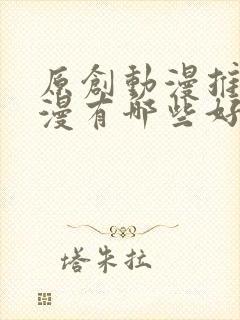 原創動漫推
漫有哪些好
塔朱拉